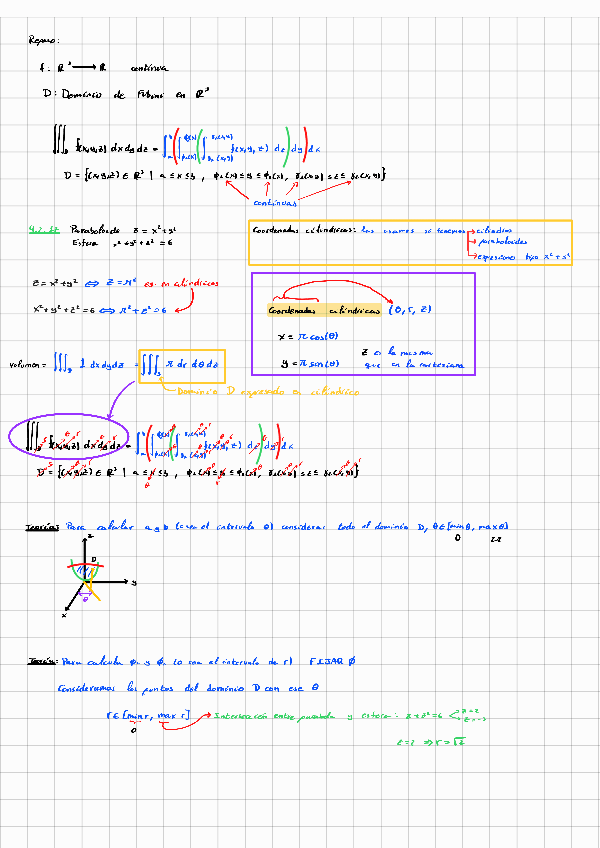 Repaso:
f: ℝ³ → ℝ continua
D: Dominio de Fubini en ℝ³
∭_D f(x,y,z) dx dy dz = ∫_a^b ( ∫_{φ₁(x)}^{φ₂(x)} ( ∫_{γ₁(x,y)}^{γ₂(x,y)} f(x,y,z) dz ) dy ) dx
D = {(x,y,z) ∈ ℝ³ | a ≤ x ≤ b, φ₁(x) ≤ y ≤ φ₂(x), γ₁(x,y) ≤ z ≤ γ₂(x,y)}
continuas
Paraboloide z = x²+y²
Esfera x²+y²+z² = 6
Coordenadas cilíndricas: las usamos si tenemos → cilindros
→ paraboloides
→ expresiones tipo x²+y²
z = x²+y² ⇔ z = r² ec. en cilíndricas
x²+y²+z² = 6 ⇔ r²+z² = 6
Coordenadas cilíndricas (θ, r, z)
x = r cos(θ)
y = r sin(θ)
z es la misma
que en la cartesiana
Volumen = ∭_D 1 dx dy dz = ∭_D r dr dθ dz
Dominio D expresado en cilíndrico
∭_D f(x,y,z) dx dy dz = ∫_a^b ( ∫_{φ₁(x)}^{φ₂(x)} ( ∫_{γ₁(x,y)}^{γ₂(x,y)} f(x,y,z) dz ) dy ) dx
D = {(x,y,z) ∈ ℝ³ | a ≤ x ≤ b, φ₁(x) ≤ y ≤ φ₂(x), γ₁(x,y) ≤ z ≤ γ₂(x,y)}
Teoría: Para calcular a y b (con el intervalo θ) considerar todo el dominio D, θ∈[min θ, max θ]
0 2π
z
D
y
x
θ
Teoría: Para calcular φ₁ y φ₂ (o con el intervalo de r) FIJAR θ
Consideramos los puntos del dominio D con ese θ
r ∈ [min r, max r] → Intersección entre parabola y esfera: z+z²=6 z=2
z=-3
0
z=2 ⇒ r=√2